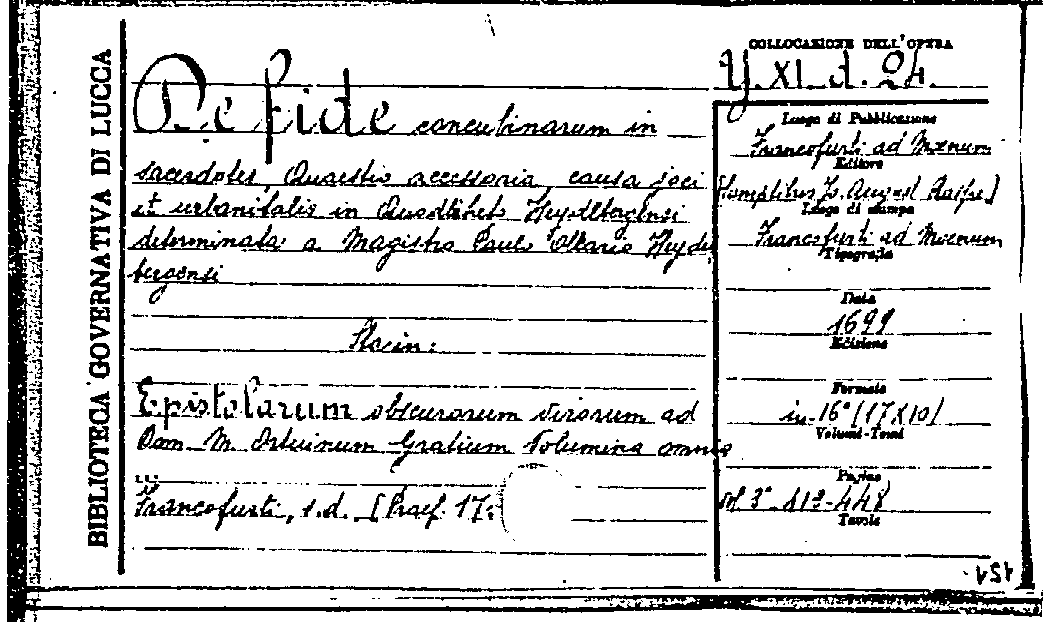 BIBLIOTECA GOVERNATIVA DI LUCCA
De fide concubinarum in
sacerdotes, Quaestio accessoria, causa joci
et urbanitatis in Quodlibeto Heydlbergensi
determinata a Magistro Paulo Oleario Heydel
bergensi
Sta in:
Epistolarum obscurorum virorum ad
Dom. M. Ortuinum Gratium Volumina omnia
Francofurti, s.d. [Praef. 17
COLLOCAZIONE DELL'OPERA
Y. XI. d. 24.
Luogo di Pubblicazione
Francofurti ad Moenum
Editore
[Sumptibus Jo. August Raspe]
Luogo di stampa
Francofurti ad Moenum
Tipografia
Data
1699
Edizione
Formato
in-16° (17x10)
Volumi-Tomi
Pagine
Tavole